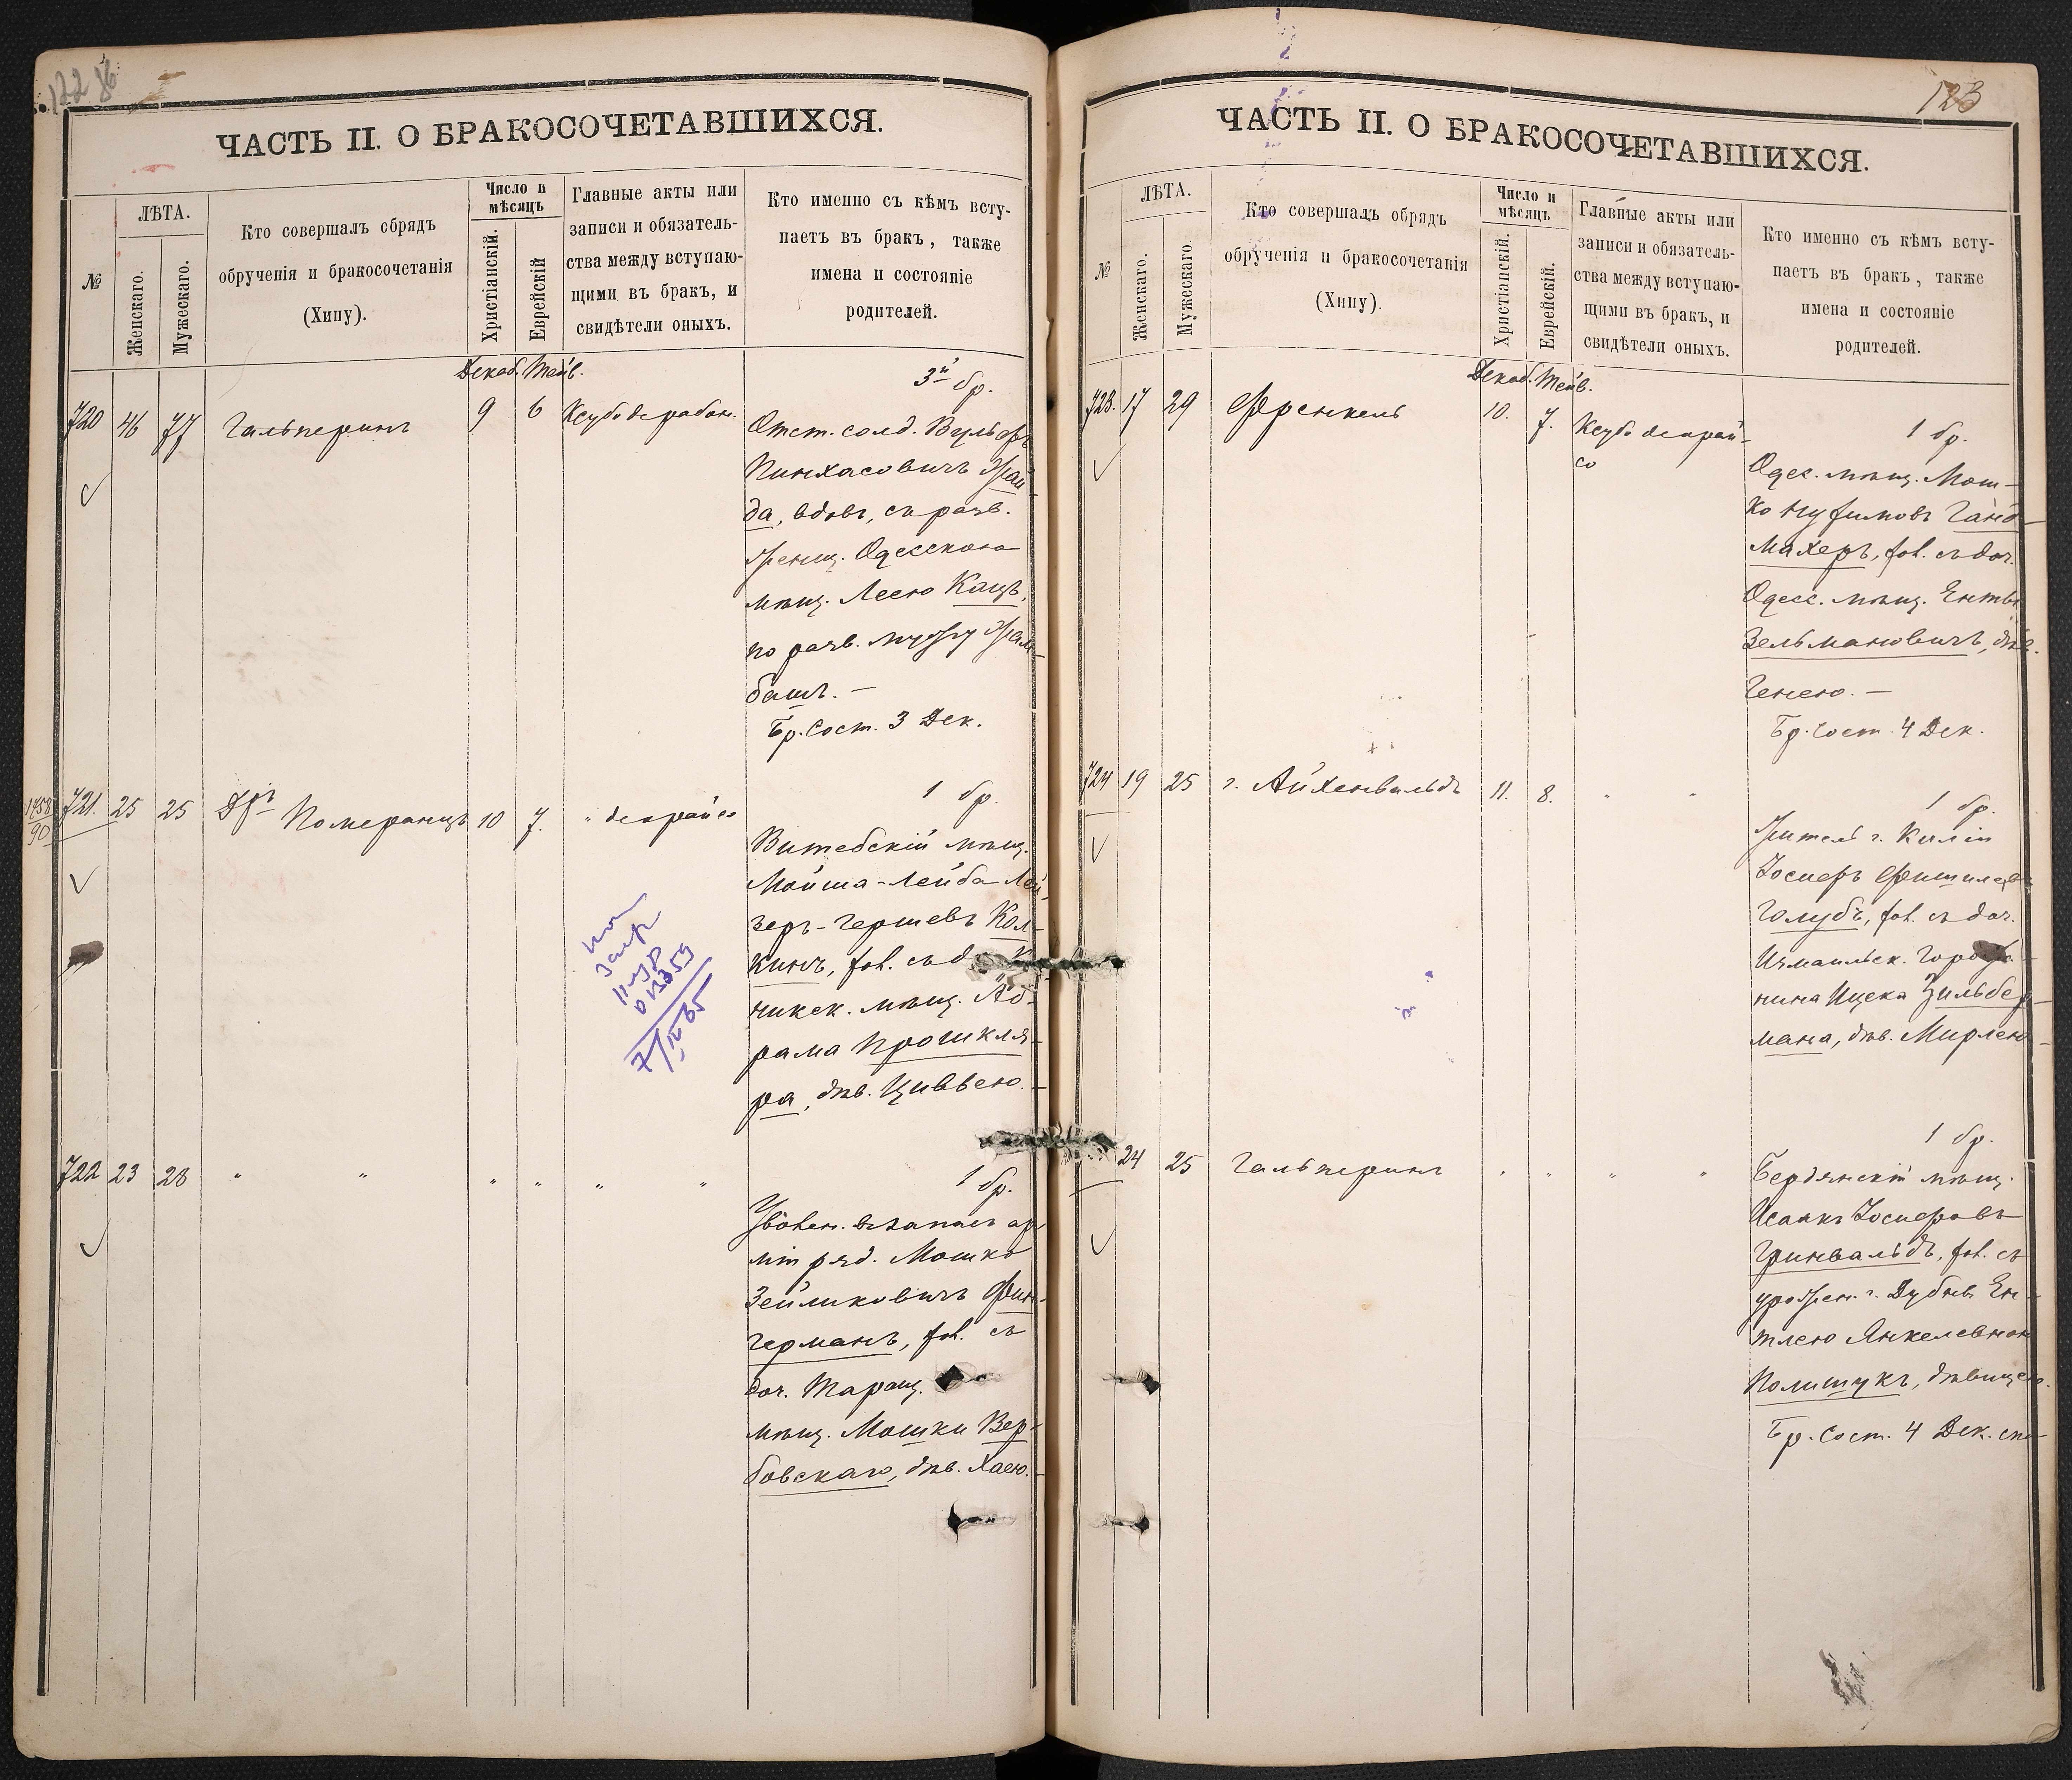 ЧАСТЬ II. О БРАКОСОЧЕТАВШИХСЯ.
№
ЛѢТА.
Женскаго.
Мужескаго.
Кто совершалъ обрядъ
обрученія и бракосочетанія
(Хипу).
Число и
мѣсяцъ
Христіанскій.
Еврейскій
Главные акты или
записи и обязатель-
ства между вступаю-
щими въ бракъ, и
свидѣтели оныхъ.
Кто именно съ кѣмъ всту-
паетъ въ бракъ, также
имена и состояніе
родителей.
Декаб. Тейв.
720 46 77 Гальперинъ 9 6
3й бр.
Отст. солд. Вульфъ
Пинхасовичъ
да, вдовъ, съ разв.
женщ. Одесскою
мѣщ. Леею Кацъ,
по разв. мужу
башъ. —
Бр. сост. 3 Дек.
1758
90
721. 25 25 Дръ Померанцъ 10 7.
1 бр.
Витебскій мѣщ.
Мойша-Лейба Лей-
зеръ-Гершевъ Кал-
кинъ, хол. съ
мѣщ. Аб-
рама
ра, дѣв. Цивьею. —
722 23 28 " " " " " "
1 бр.
Уволен. въ запасъ ар-
міи ряд. Мошко
Зейликовичъ Фин-
германъ, хол. съ
доч. Таращ.
мѣщ. Мошки Вер-
бовскаго, дѣв. Хаею. —
123
ЧАСТЬ II. О БРАКОСОЧЕТАВШИХСЯ.
№
ЛѢТА.
Женскаго.
Мужескаго.
Кто совершалъ обрядъ
обрученія и бракосочетанія
(Хипу).
Число и
мѣсяцъ
Христіанскій.
Еврейскій.
Главные акты или
записи и обязатель-
ства между вступаю-
щими въ бракъ, и
свидѣтели оныхъ.
Кто именно съ кѣмъ всту-
паетъ въ бракъ, также
имена и состояніе
родителей.
Декаб. Тейв.
723. 17 29 Френкель 10. 7.
1 бр.
Одес. мѣщ. Мош-
ко Нусимовъ Ганд-
махеръ, хол. съ доч.
Одесс. мѣщ.
Зельмановичъ, дѣв.
Генею. —
Бр. сост. 4 Дек.
724 19 25 г. Айхенвальдъ 11. 8. " "
1 бр.
Житель г. Киліи
Іосифъ Фишилевъ
Голубъ, хол. съ доч.
Измаильск.
нина Ицека Зильбер-
мана, дѣв. Мирлею —
24 25 Гальперинъ " " " "
1 бр.
Бердянскій мѣщ.
Исаакъ Іосифовъ
Гринвальдъ, хол. съ
урожен. г. Дубны Ен-
тлею Янкелевною
Полищукъ, дѣвицею.
Бр. сост. 4 Дек.